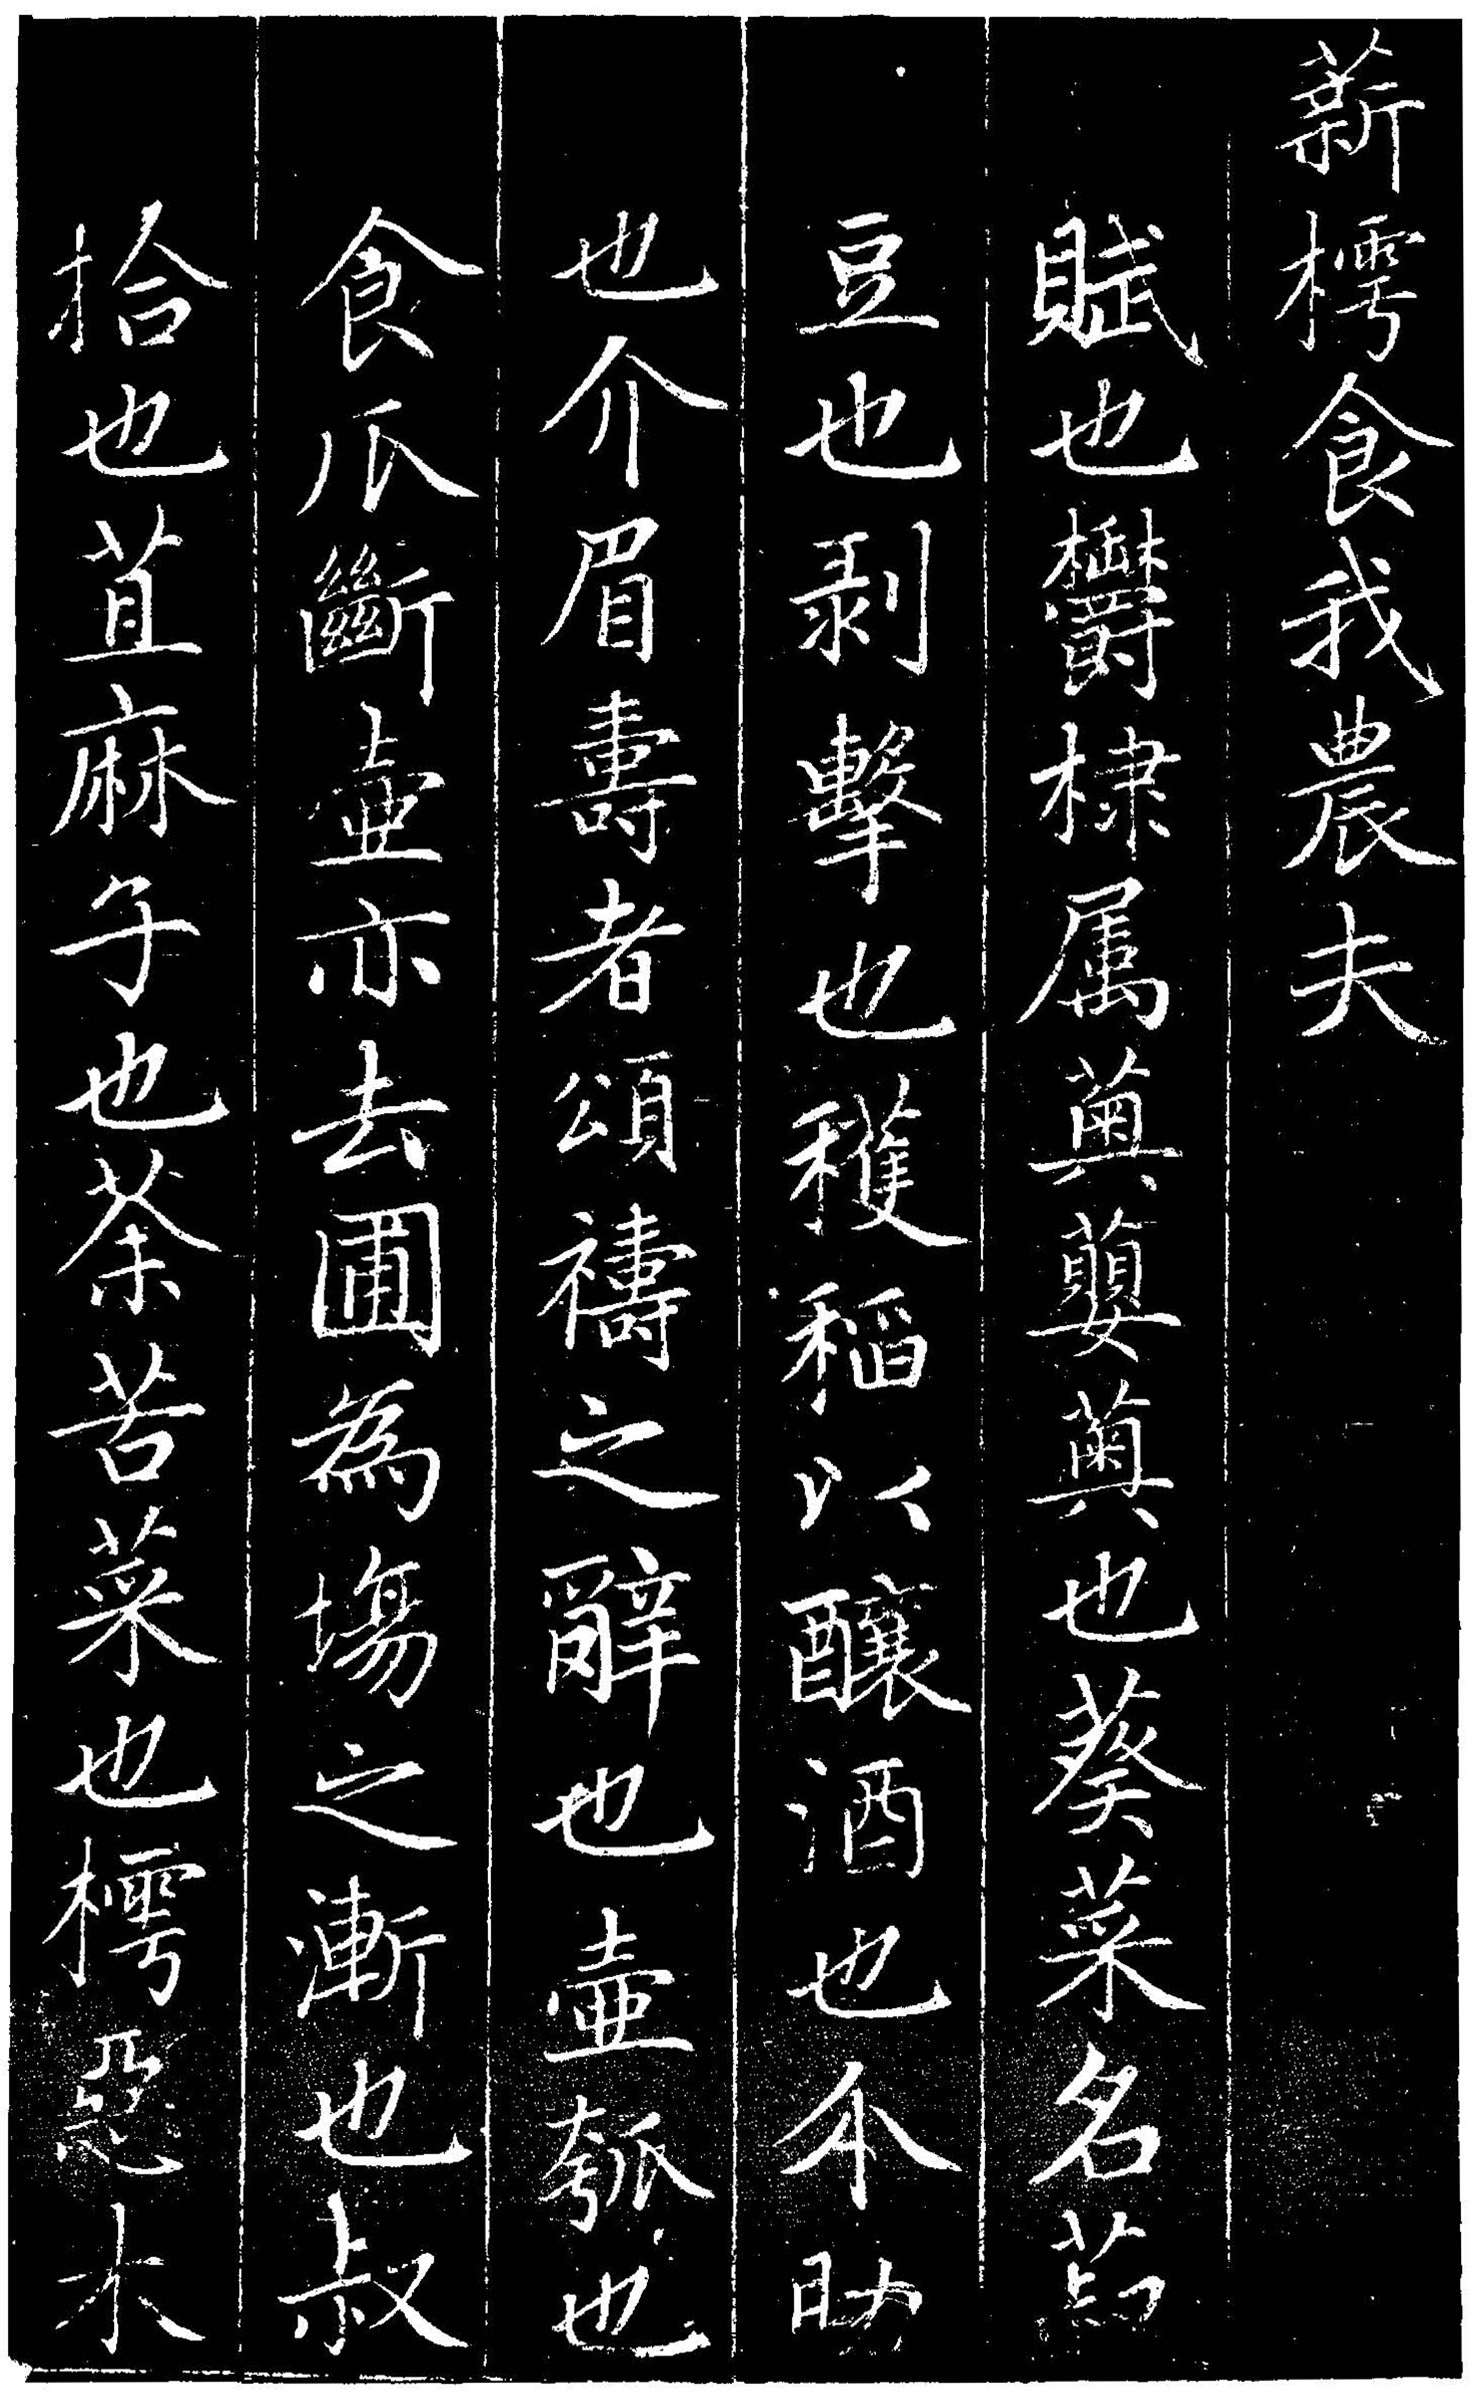 薪樗食我農夫
賦也欝棣属薁蘡薁也葵菜名菽
豆也剥擊也穫稻以釀酒也介助
也介眉壽者頌禱之辭也壺瓠也
食瓜斷壺亦去圃為塲之漸也叔
拾也苴麻子也荼苦菜也樗惡木